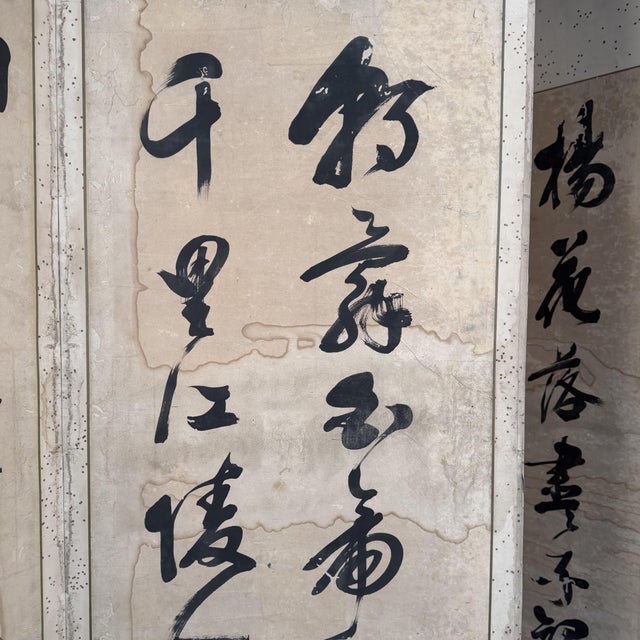 楊花落盡子規
朝辭白帝
千里江陵一